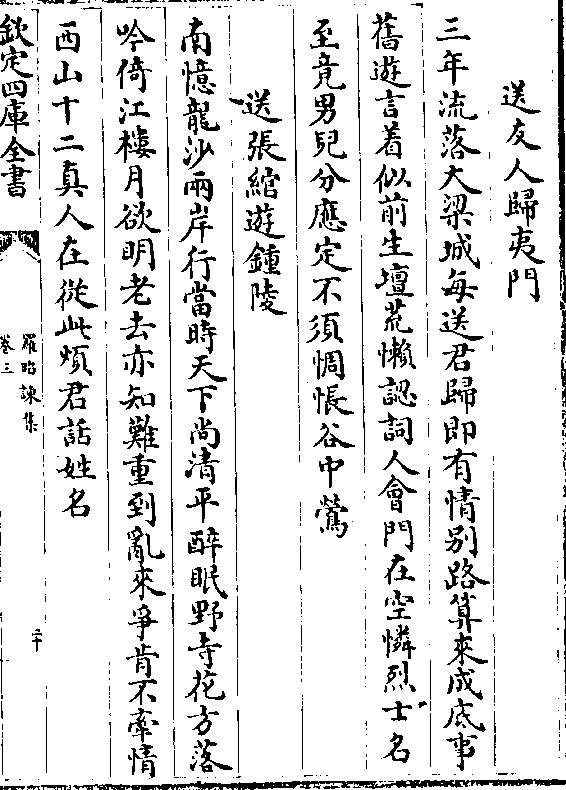 送友人歸夷門
三年流落大梁城每送君歸即有情别路算來成底事
舊遊言着似前生壇荒懶認詞人會門在空憐烈士名
至竟男兒分應定不須惆悵谷中鶯
送張綰遊鍾陵
南憶龍沙兩岸行當時天下尚清平醉眠野寺花方落
吟倚江樓月欲明老去亦知難重到亂來爭肯不牽情
西山十二真人在從此煩君話姓名
欽定四庫全書
羅昭諫集
卷三
二十